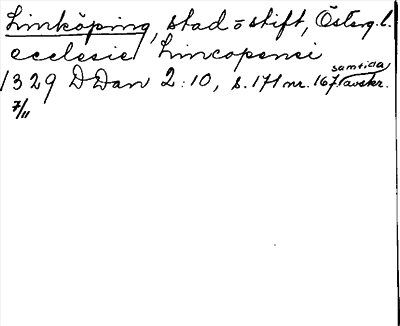 Linköping, stad o stift, Österg.l.
ecclesie Lincopensi
samtida
1329 DDan 2:10, s. 171 nr. 167 avskr.
7/11